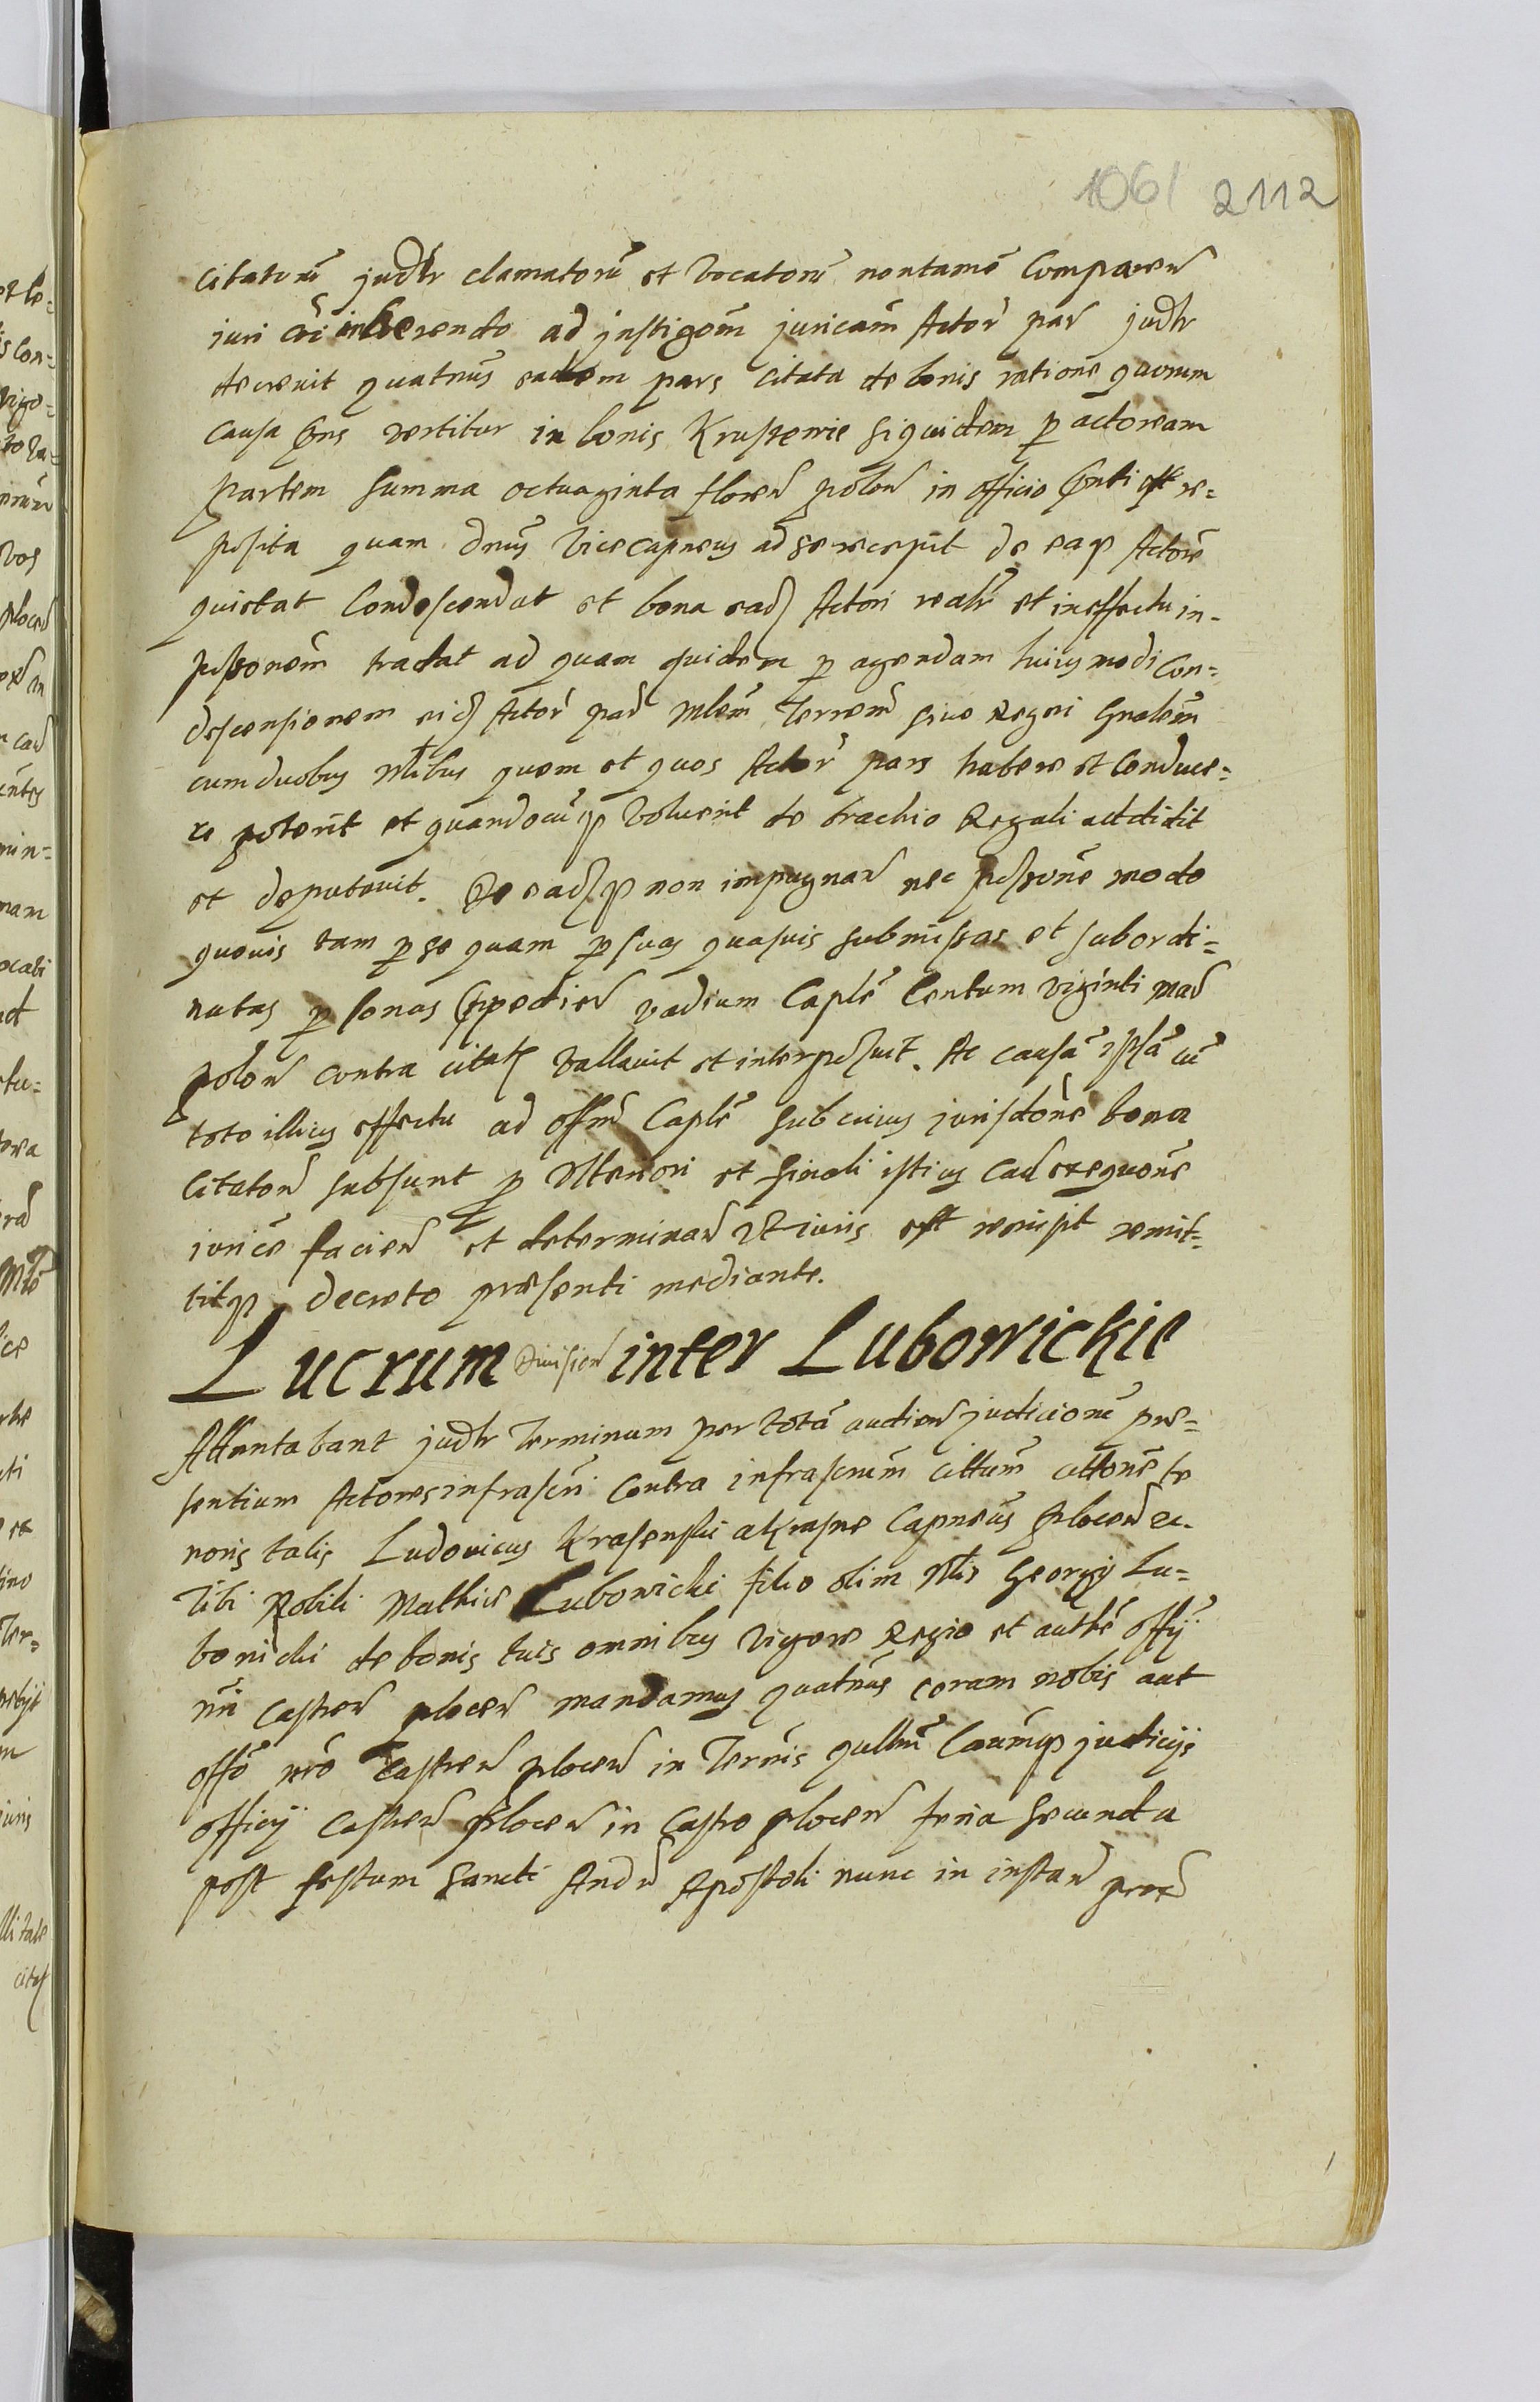 1061 2112
citatorũ judlr clamatorũ et vocatorũ nontamẽ comparen
iuri cõi inherendo ad jnstigõem juricam Actor par judlr
decrevit quatnus eadem pars citata de bonis ratione quorum
causa pns vertitur in bonis Kruszewie siquidem p actoream
partem summa octuaginta floren polon in officio pnti est re=
posita quam dnus vicecapneus ad se recepit de eaq Actorẽ
quietat condescendat et bona ead Actori realr et in effectu in-
possonem tradat ad quam quidem p agendam huiusmodi con=
descensionem eid Actor par Mlem Terrem sive Regni Gnalem
cum duobus Nlibus quem et quos Actor pars habere et conduce=
re poterit et quandocuq voluerit de brachio Regali addidit
et deputavit. De eadq non impugnan nec possone modo
quovis tam p se quam p suas quasvis submissas et subordi=
natas psonas expedien vadium Caple Centum viginti mar
polon contra citat vallavit et interposuit. Ac causã ipsã cũ
toto illius effectu ad offm Caple sub cuius jurisdone bona
Citator subsunt p ulteriori et finali istius cau exequone
iurice facien et determinan Ut iuris est remisit remit=
titq decreto præsenti mediante.
Lucrum Division inter Lubowickie
Attentabant judlr Terminum per totã audien judiciorũ præ=
sentium Actores infrascri contra infrascrum cittum cittone te
noris talis Ludovicus Krasenski a Krasne Capneus plocen ec.
Tibi Nobili Mathie Lubowicki filio olim Nlis Georgij Lu=
bowicki de bonis tuis omnibus vigore Regio et authe offij
nri castren plocen mandamus quatnus coram nobis aut
offo nro castren plocen in Termis qullnũ Caumq judicijs
officij castren plocen in castro plocen feria secunda
post festum Sancti Andr Apostoli nunc in instan prox